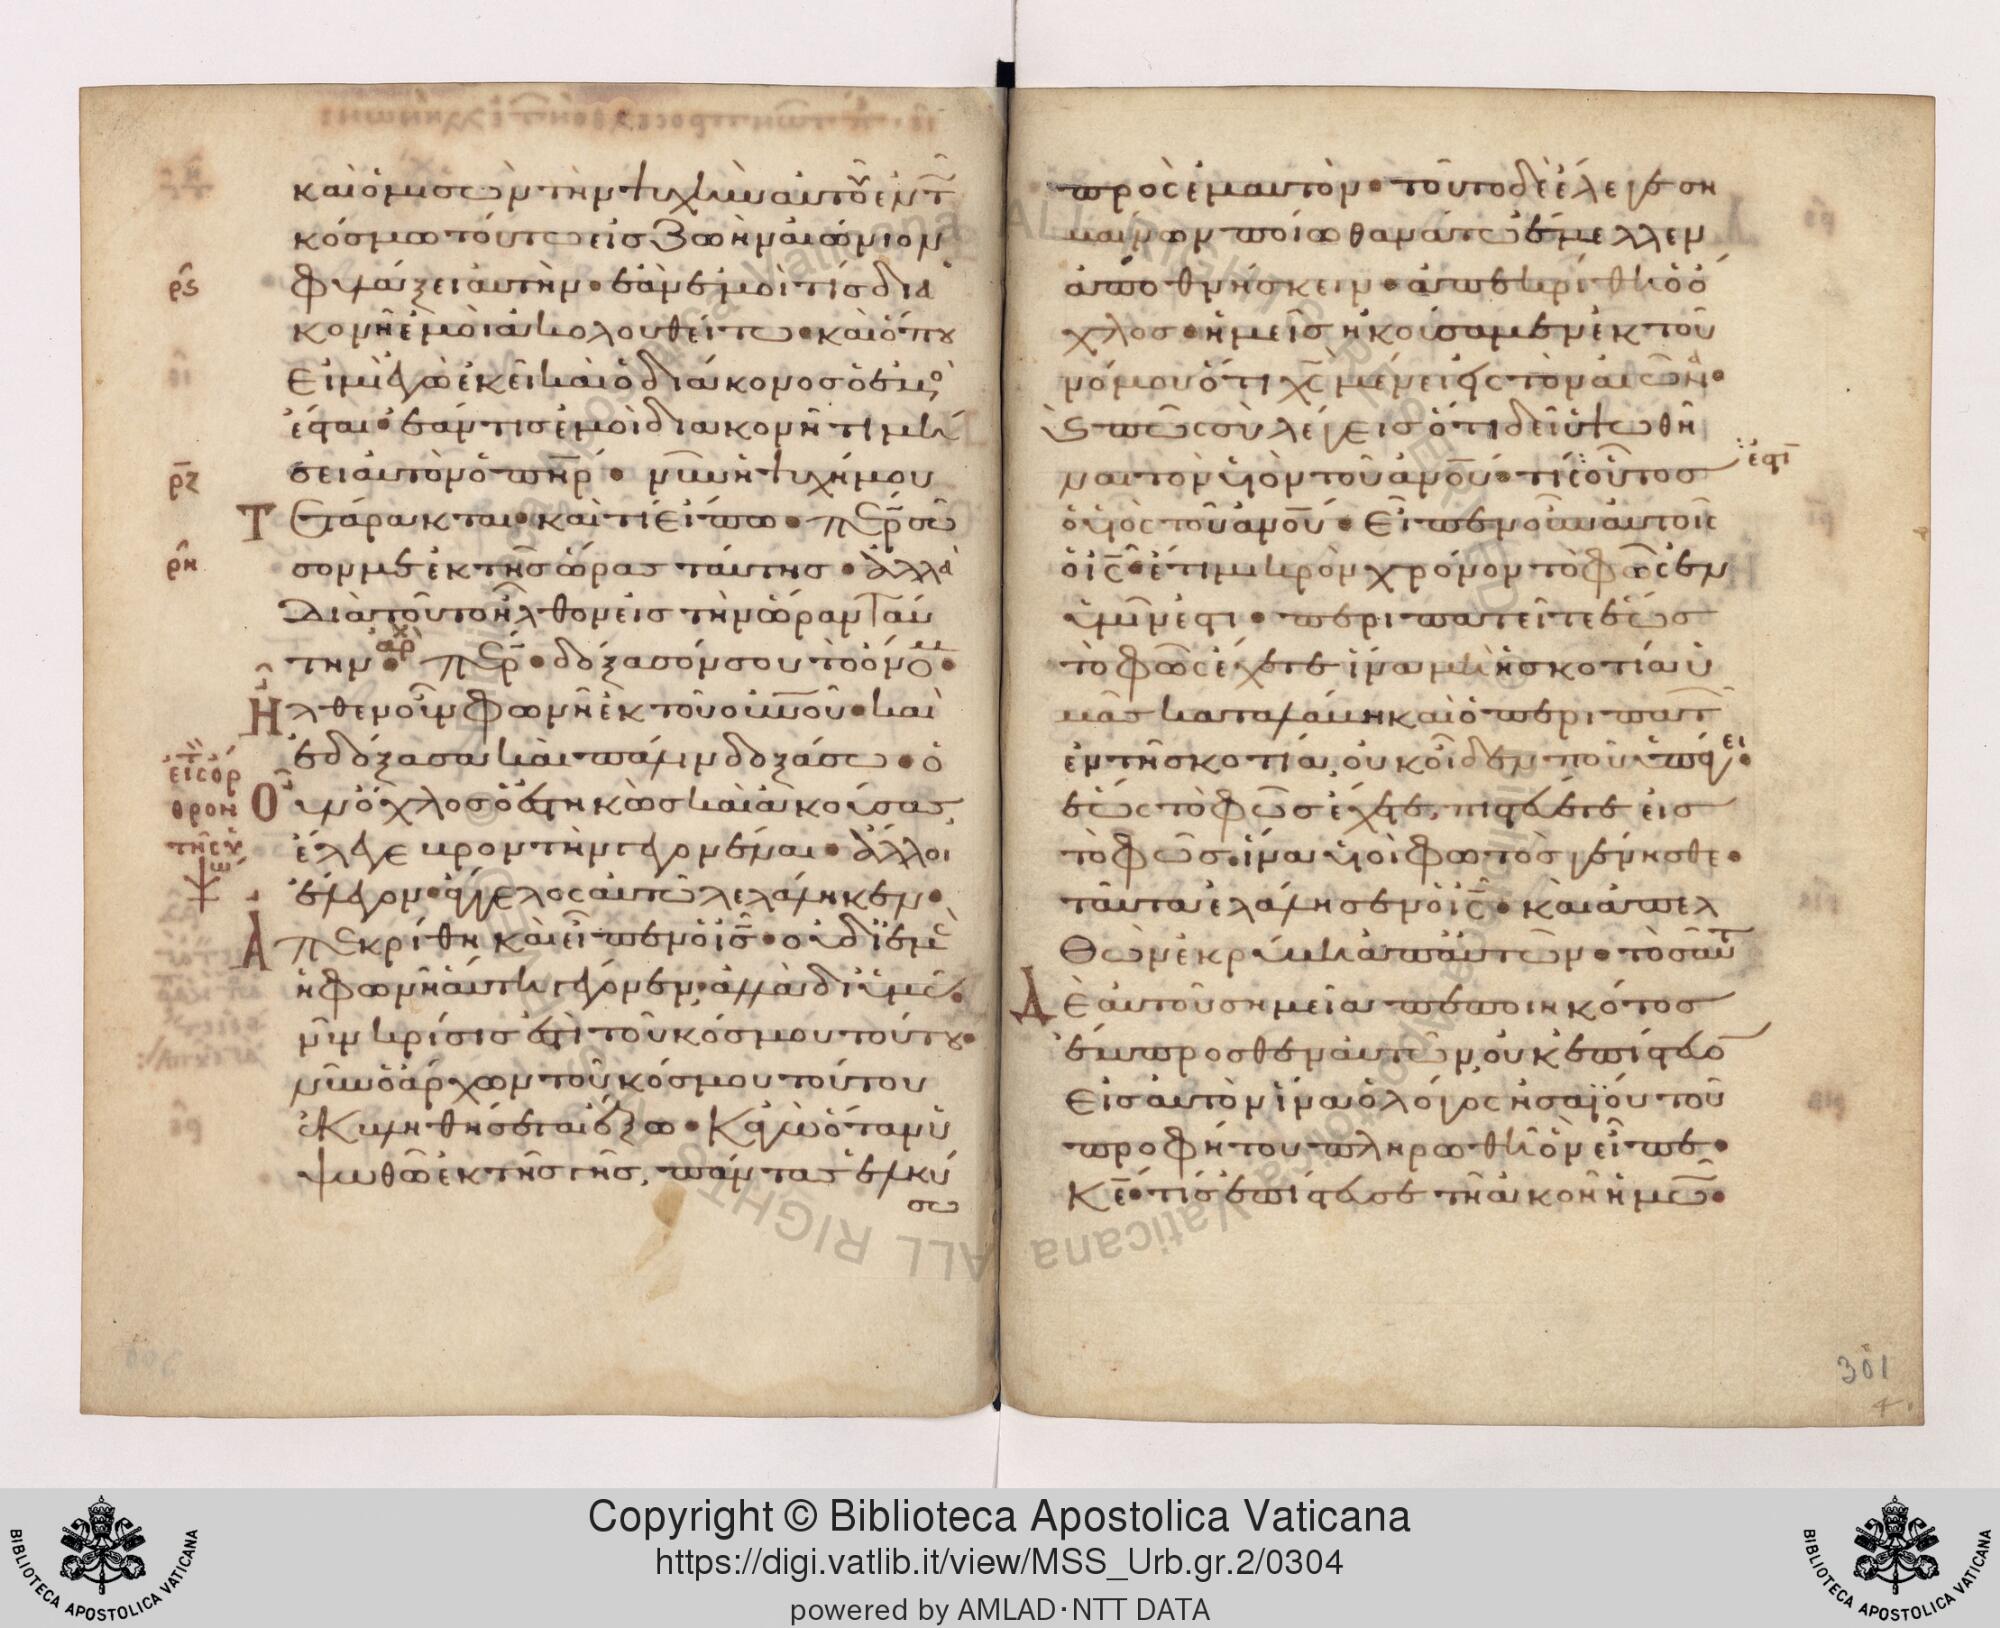 καὶ ὁ μισῶν τὴν ψυχὴν αὐτοῦ ἐν τ
κόσμω τούτω εἰς ζωὴν αἰώνιον
φυλάξει αὐτήν· ἐὰν ἐμοί τίς δια
ρϛ
κονῆ ἐμοὶ ἀκολουθείτω· καὶ ὅπου
εἰμὶ ἐγὼ ἐκεῖ καὶ ὁ διάκονος ὁ ἐμὸ
ἔσται· ἐάν τις ἐμοὶ διακονῆ τιμή
ρζ
σει αὐτὸν ὁ πηρ· νῦν ἡ ψυχή μου
Τετάρακται· καὶ τί εἴπω· περ σῶ
ρη
σόν με ἐκ τῆς ὥρας ταύτης· ἀλλὰ
διὰ τοῦτο ἦλθον εἰς τὴν ὥραν ταύ
την· αρχ περ· δόξασόν σου τὸ ὄνομ·
Ἦλθεν οὖν φωνὴ ἐκ τοῦ οὐνοῦ· καὶ
ἐδόξασα καὶ πάλιν δοξάσω· ὁ
εἰς ὄρ
θρον
τῆς ὑ
ψω
Οὖν ὄχλος ὁ ἑστηκὼς καὶ ἀκούσας,
ἔλεγεν βροντὴν γεγονέναι· ἄλλοι
ἔλεγον· ἄγγελος αὐτῶ λελάληκεν·
Ἀπεκρίθη καὶ εἶπεν ὁ ις· οὐ δι ἐμὲ
ἡ φωνὴ αὕτη γέγονεν, ἀλλὰ δι ὑμᾶς·
νῦν κρίσις ἐστὶ τοῦ κόσμου τούτου·
νῦν ὁ ἄρχων τοῦ κόσμου τούτου
ἐκβληθήσεται ἔξω· κἀγὼ ὅταν ὑ
ψωθῶ ἐκ τῆς γῆς, πάντας ἑλκύ
σω
πρὸς ἐμαυτόν· τοῦτο δὲ ἔλεγε ση
μαίνων ποίω θανάτω ἔμελλεν
ἀποθνήσκειν· ἀπεκρίθη ὁ ὄ
χλος· ἡμεῖς ἠκούσαμεν ἐκ τοῦ
νόμου ὅτι χς μένει εἰς τὸν αἰῶνα·
ϗ πῶς σὺ λέγεις ὅτι δεῖ ὑψωθῆ
ναι τὸν υἱὸν τοῦ ανου· τίς οὗτος
ἐστι
ὁ υἱὸς τοῦ ανου· εἶπεν οὖν αὐτοῖς
ὁ ις· ἔτι μικρὸν χρόνον τὸ φῶς ἐν
ὑμῖν ἐστι· περιπατεῖτε ἕως
τὸ φῶς ἔχετε ἵνα μὴ ἡ σκοτία ὑ
μᾶς καταλάβη καὶ ὁ περιπατ
ἐν τῆ σκοτία, οὐκ οἶδεν ποῦ ὑπάγει·
ἕως τὸ φῶς ἔχετε, πιστεύετε εἰς
τὸ φῶς· ἵνα υἱοὶ φωτὸς γένησθε·
ταῦτα ἐλάλησεν ὁ ις· καὶ ἀπελ
θὼν ἐκρύβη ἀπ αὐτῶν· τοσαῦτ
Δὲ αὐτοῦ σημεῖα πεποιηκότος
ἔμπροσθεν αὐτῶν, οὐκ ἐπίστευο
εἰς αὐτὸν ἵνα ὁ λόγος ἡσαΐου τοῦ
προφήτου πληρωθῆ ὃν εἶπε·
Κε· τίς ἐπίστευσε τῆ ἀκοῆ ἡμῶν·
301
Copyright © Biblioteca Apostolica Vaticana
https://digi.vatlib.it/view/MSS_Urb.gr.2/0304
powered by AMLAD·NTT DATA
BIBLIOTECA APOSTOLICA VATICANA
BIBLIOTECA APOSTOLICA VATICANA